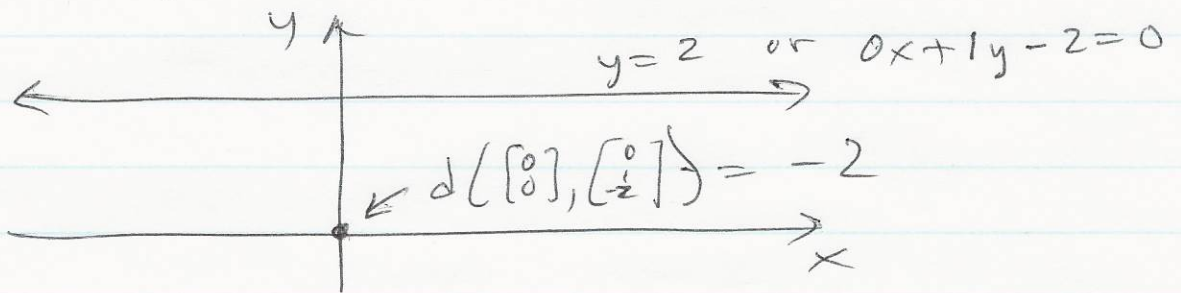 y
y = 2 or 0x + 1y - 2 = 0
d([0 0], [0 1 -2]) = -2
x